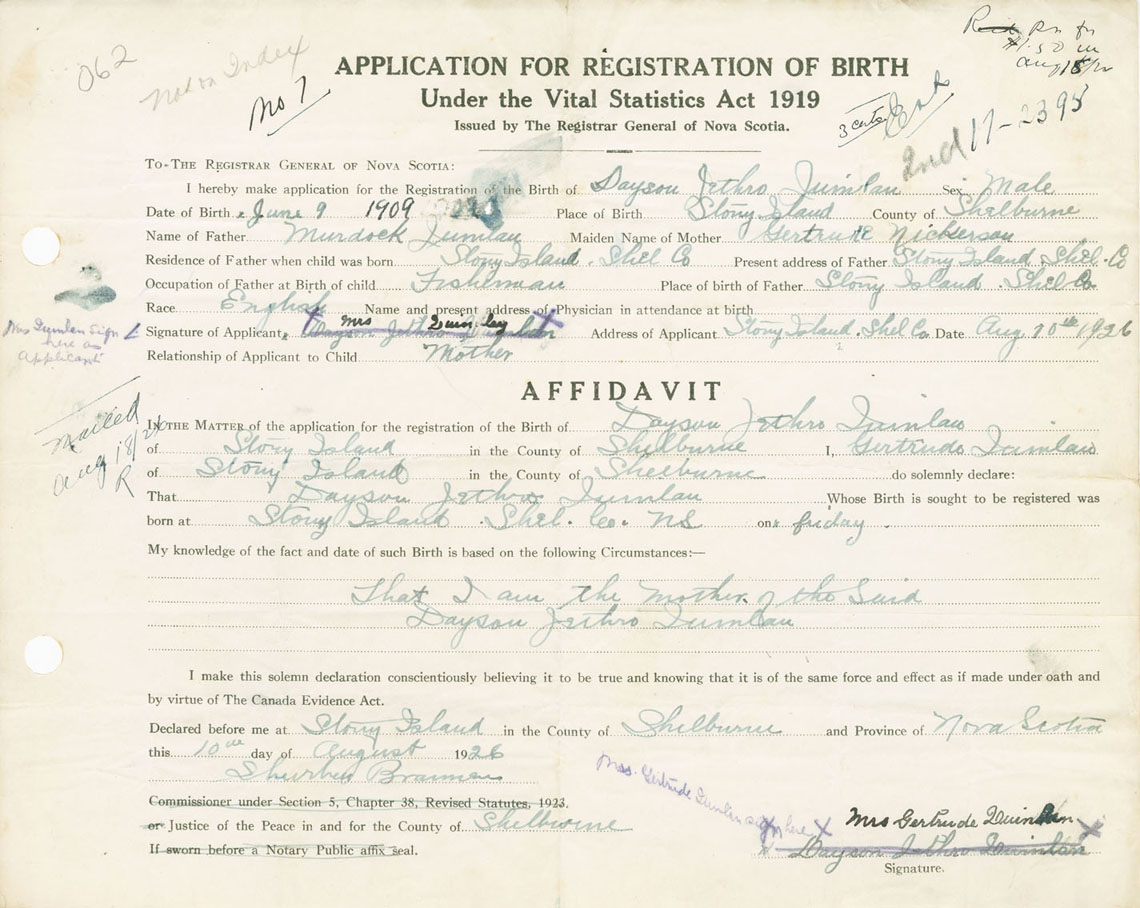 062
Not on Index
No 7
Rn for
$1.50 in
Aug 18/26
APPLICATION FOR REGISTRATION OF BIRTH
Under the Vital Statistics Act 1919
Issued by The Registrar General of Nova Scotia.
3 certs
2nd 17-2395
TO THE REGISTRAR GENERAL OF NOVA SCOTIA:
I hereby make application for the Registration of the Birth of Dayson Jethro Quinlan Sex Male
Date of Birth June 9 1909 Place of Birth Stony Island County of Shelburne
Name of Father Murdock Quinlan Maiden Name of Mother Gertrude Nickerson
Residence of Father when child was born Stony Island. Shel Co Present address of Father Stony Island. Shel. Co
Occupation of Father at Birth of child Fisherman Place of birth of Father Stony Island. Shel Co.
Race English Name and present address of Physician in attendance at birth
Mrs Quinlan Sign here as Applicant
Signature of Applicant Mrs Quinlan Address of Applicant Stony Island. Shel Co Date Aug 10th 1926
Relationship of Applicant to Child Mother
AFFIDAVIT
Mailed
Aug 18/26
R
IN THE MATTER of the application for the registration of the Birth of Dayson Jethro Quinlan
of Stony Island in the County of Shelburne I, Gertrude Quinlan
of Stony Island in the County of Shelburne do solemnly declare:
That Dayson Jethro Quinlan Whose Birth is sought to be registered was
born at Stony Island. Shel. Co. NS on friday.
My knowledge of the fact and date of such Birth is based on the following Circumstances:—
That I am the Mother of the Said
Dayson Jethro Quinlan
I make this solemn declaration conscientiously believing it to be true and knowing that it is of the same force and effect as if made under oath and
by virtue of The Canada Evidence Act.
Declared before me at Stony Island in the County of Shelburne and Province of Nova Scotia
this 10th day of August 1926
Commissioner under Section 5, Chapter 38, Revised Statutes, 1923.
or Justice of the Peace in and for the County of Shelburne
If sworn before a Notary Public affix seal.
Mrs. Gertrude Quinlan sign here X
Mrs Gertrude Quinlan
Dayson Jethro Quinlan
Signature.